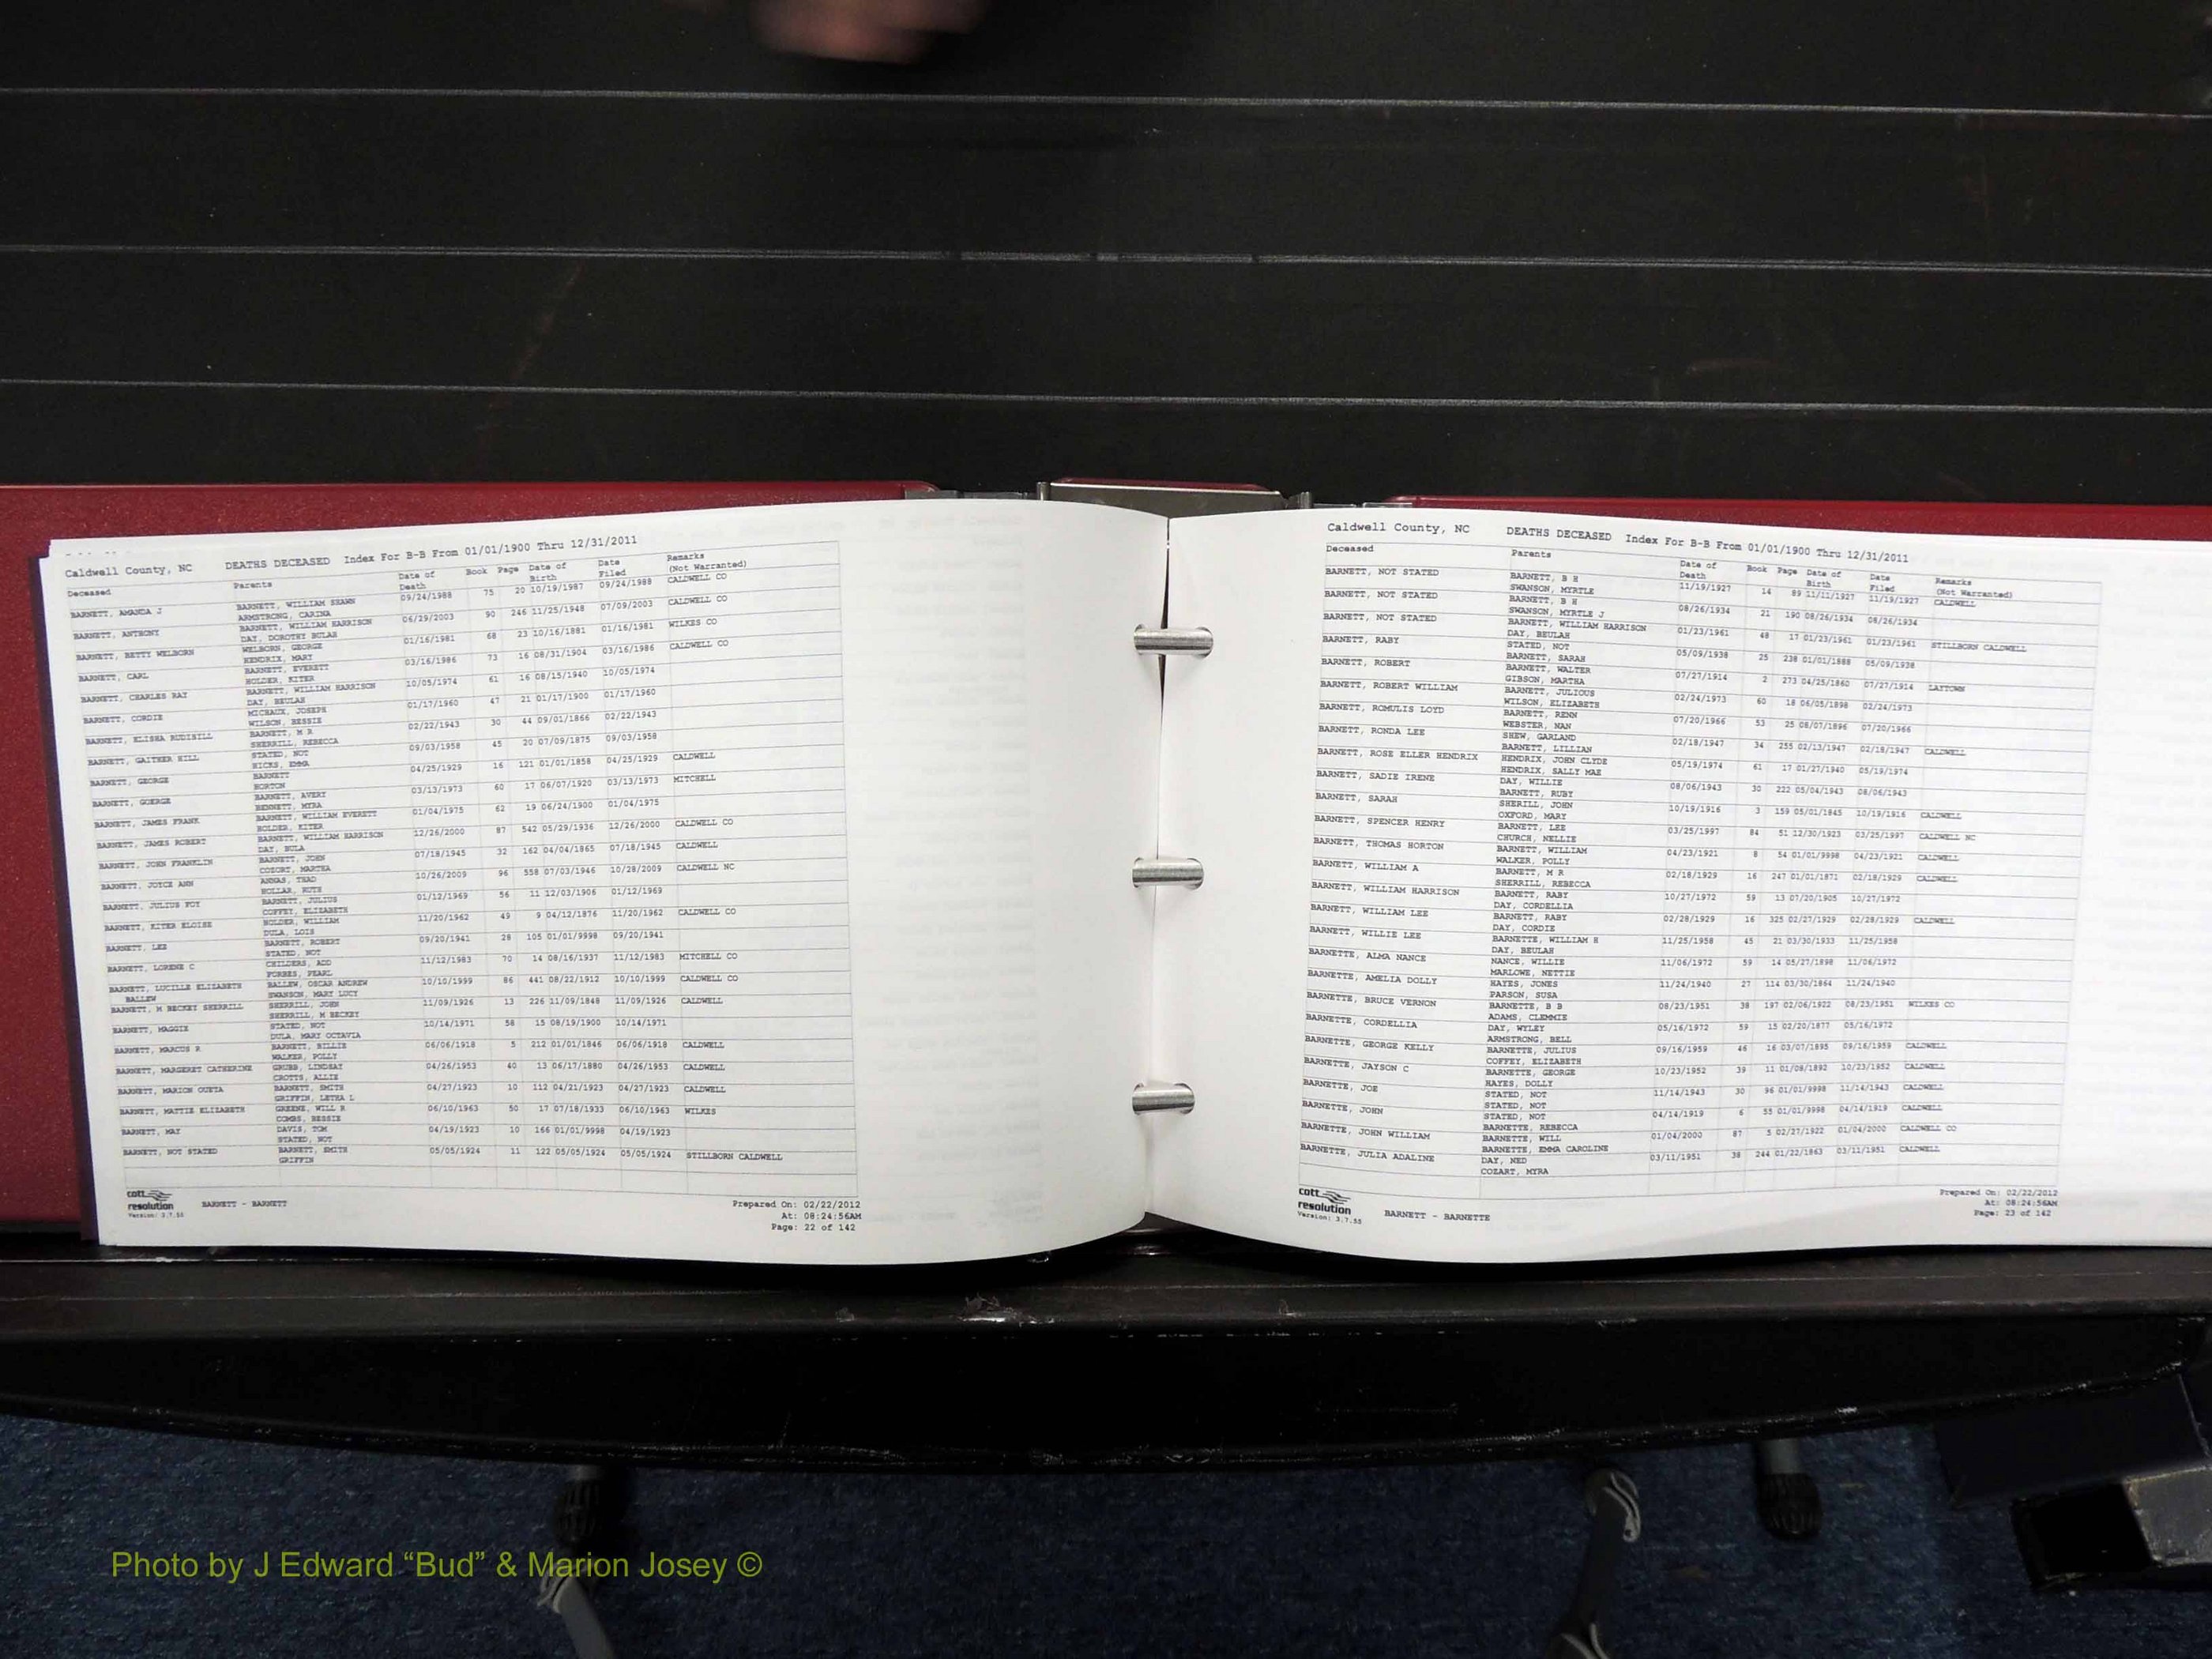 Caldwell County, NC DEATHS DECEASED Index For B-B From 01/01/1900 Thru 12/31/2011
Deceased Parents Date of Death Book Page Date of Birth Date Filed Remarks (Not Warranted)
BARNETT, AMANDA J BARNETT, WILLIAM SHAWN 09/24/1988 75 20 10/19/1987 09/24/1988 CALDWELL CO
ARMSTRONG, CARINA
BARNETT, ANTHONY BARNETT, WILLIAM HARRISON 06/29/2003 90 246 11/25/1948 07/09/2003 CALDWELL CO
DAY, DOROTHY BULAH
BARNETT, BETTY WELBORN WELBORN, GEORGE 01/16/1981 68 23 10/16/1881 01/16/1981 WILKES CO
HENDRIX, MARY
BARNETT, CARL BARNETT, EVERETT 03/16/1986 73 16 08/31/1904 03/16/1986 CALDWELL CO
HOLDER, KITER
BARNETT, CHARLES RAY BARNETT, WILLIAM HARRISON 10/05/1974 61 16 08/15/1940 10/05/1974
DAY, BEULAH
BARNETT, CORDIE MICHAUX, JOSEPH 01/17/1960 47 21 01/17/1900 01/17/1960
WILSON, BESSIE
BARNETT, ELISHA RUDISILL BARNETT, M R 02/22/1943 30 44 09/01/1866 02/22/1943
SHERRILL, REBECCA
BARNETT, GAITHER HILL STATED, NOT 09/03/1958 45 20 07/09/1875 09/03/1958
HICKS, EMMA
BARNETT, GEORGE BARNETT 04/25/1929 16 121 01/01/1858 04/25/1929 CALDWELL
HORTON
BARNETT, GOERGE BARNETT, AVERY 03/13/1973 60 17 06/07/1920 03/13/1973 MITCHELL
BENNETT, MYRA
BARNETT, JAMES FRANK BARNETT, WILLIAM EVERETT 01/04/1975 62 19 06/24/1900 01/04/1975
HOLDER, KITER
BARNETT, JAMES ROBERT BARNETT, WILLIAM HARRISON 12/26/2000 87 542 05/29/1936 12/26/2000 CALDWELL CO
DAY, BULA
BARNETT, JOHN FRANKLIN BARNETT, JOHN 07/18/1945 32 162 04/04/1865 07/18/1945 CALDWELL
COZORT, MARTHA
BARNETT, JOYCE ANN ANNAS, THAD 10/26/2009 96 558 07/03/1946 10/28/2009 CALDWELL NC
HOLLAR, RUTH
BARNETT, JULIUS FOY BARNETT, JULIUS 01/12/1969 56 11 12/03/1906 01/12/1969
COFFEY, ELIZABETH
BARNETT, KITER ELOISE HOLDER, WILLIAM 11/20/1962 49 9 04/12/1876 11/20/1962 CALDWELL CO
DULA, LOIS
BARNETT, LEE BARNETT, ROBERT 09/20/1941 28 105 01/01/9998 09/20/1941
STATED, NOT
BARNETT, LORENE C CHILDERS, ADD 11/12/1983 70 14 08/16/1937 11/12/1983 MITCHELL CO
FORBES, PEARL
BARNETT, LUCILLE ELIZABETH BALLEW, OSCAR ANDREW 10/10/1999 86 441 08/22/1912 10/10/1999 CALDWELL CO
BALLEW SWANSON, MARY LUCY
BARNETT, M BECKEY SHERRILL SHERRILL, JOHN 11/09/1926 13 226 11/09/1848 11/09/1926 CALDWELL
SHERRILL, M BECKEY
BARNETT, MAGGIE STATED, NOT 10/14/1971 58 15 08/19/1900 10/14/1971
DULA, MARY OCTAVIA
BARNETT, MARCUS R BARNETT, BILLIE 06/06/1918 5 212 01/01/1846 06/06/1918 CALDWELL
WALKER, POLLY
BARNETT, MARGERET CATHERINE GRUBB, LINDSAY 04/26/1953 40 13 06/17/1880 04/26/1953 CALDWELL
CROTTS, ALLIE
BARNETT, MARION OUETA BARNETT, SMITH 04/27/1923 10 112 04/21/1923 04/27/1923 CALDWELL
GRIFFIN, LETHA L
BARNETT, MATTIE ELIZABETH GREENE, WILL R 06/10/1963 50 17 07/18/1933 06/10/1963 WILKES
COMBS, BESSIE
BARNETT, MAY DAVIS, TOM 04/19/1923 10 166 01/01/9998 04/19/1923
STATED, NOT
BARNETT, NOT STATED BARNETT, SMITH 05/05/1924 11 122 05/05/1924 05/05/1924 STILLBORN CALDWELL
GRIFFIN
cott resolution
Version: 3.7.55
BARNETT - BARNETT
Prepared On: 02/22/2012
At: 08:24:56AM
Page: 22 of 142
Caldwell County, NC DEATHS DECEASED Index For B-B From 01/01/1900 Thru 12/31/2011
Deceased Parents Date of Death Book Page Date of Birth Date Filed Remarks (Not Warranted)
BARNETT, NOT STATED BARNETT, B H 11/19/1927 14 89 11/11/1927 11/19/1927 CALDWELL
SWANSON, MYRTLE
BARNETT, NOT STATED BARNETT, B H 08/26/1934 21 190 08/26/1934 08/26/1934
SWANSON, MYRTLE J
BARNETT, NOT STATED BARNETT, WILLIAM HARRISON 01/23/1961 48 17 01/23/1961 01/23/1961 STILLBORN CALDWELL
DAY, BEULAH
BARNETT, RABY STATED, NOT 05/09/1938 25 238 01/01/1888 05/09/1938
BARNETT, SARAH
BARNETT, ROBERT BARNETT, WALTER 07/27/1914 2 273 04/25/1860 07/27/1914 LAYTOWN
GIBSON, MARTHA
BARNETT, ROBERT WILLIAM BARNETT, JULIOUS 02/24/1973 60 18 06/05/1898 02/24/1973
WILSON, ELIZABETH
BARNETT, ROMULIS LOYD BARNETT, RENN 07/20/1966 53 25 08/07/1896 07/20/1966
WEBSTER, NAN
BARNETT, RONDA LEE SHEW, GARLAND 02/18/1947 34 255 02/13/1947 02/18/1947 CALDWELL
BARNETT, LILLIAN
BARNETT, ROSE ELLER HENDRIX HENDRIX, JOHN CLYDE 05/19/1974 61 17 01/27/1940 05/19/1974
HENDRIX, SALLY MAE
BARNETT, SADIE IRENE DAY, WILLIE 08/06/1943 30 222 05/04/1943 08/06/1943
BARNETT, RUBY
BARNETT, SARAH SHERILL, JOHN 10/19/1916 3 159 05/01/1845 10/19/1916 CALDWELL
OXFORD, MARY
BARNETT, SPENCER HENRY BARNETT, LEE 03/25/1997 84 51 12/30/1923 03/25/1997 CALDWELL NC
CHURCH, NELLIE
BARNETT, THOMAS HORTON BARNETT, WILLIAM 04/23/1921 8 54 01/01/9998 04/23/1921 CALDWELL
WALKER, POLLY
BARNETT, WILLIAM A BARNETT, M R 02/18/1929 16 247 01/01/1871 02/18/1929 CALDWELL
SHERRILL, REBECCA
BARNETT, WILLIAM HARRISON BARNETT, RABY 10/27/1972 59 13 07/20/1905 10/27/1972
DAY, CORDELLIA
BARNETT, WILLIAM LEE BARNETT, RABY 02/28/1929 16 325 02/27/1929 02/28/1929 CALDWELL
DAY, CORDIE
BARNETT, WILLIE LEE BARNETTE, WILLIAM H 11/25/1958 45 21 03/30/1933 11/25/1958
DAY, BEULAH
BARNETTE, ALMA NANCE NANCE, WILLIE 11/06/1972 59 14 05/27/1898 11/06/1972
MARLOWE, NETTIE
BARNETTE, AMELIA DOLLY HAYES, JONES 11/24/1940 27 114 03/30/1864 11/24/1940
PARSON, SUSA
BARNETTE, BRUCE VERNON BARNETTE, B B 08/23/1951 38 197 02/06/1922 08/23/1951 WILKES CO
ADAMS, CLEMMIE
BARNETTE, CORDELLIA DAY, WYLEY 05/16/1972 59 15 02/20/1877 05/16/1972
ARMSTRONG, BELL
BARNETTE, GEORGE KELLY BARNETTE, JULIUS 09/16/1959 46 16 03/07/1895 09/16/1959 CALDWELL
COFFEY, ELIZABETH
BARNETTE, JAYSON C BARNETTE, GEORGE 10/23/1952 39 11 01/08/1892 10/23/1952 CALDWELL
HAYES, DOLLY
BARNETTE, JOE STATED, NOT 11/14/1943 30 96 01/01/9998 11/14/1943 CALDWELL
STATED, NOT
BARNETTE, JOHN STATED, NOT 04/14/1919 6 55 01/01/9998 04/14/1919 CALDWELL
BARNETTE, REBECCA
BARNETTE, JOHN WILLIAM BARNETTE, WILL 01/04/2000 87 5 02/27/1922 01/04/2000 CALDWELL CO
BARNETTE, EMMA CAROLINE
BARNETTE, JULIA ADALINE DAY, NED 03/11/1951 38 244 01/22/1863 03/11/1951 CALDWELL
COZART, MYRA
cott resolution
Version: 3.7.55
BARNETT - BARNETTE
Prepared On: 02/22/2012
At: 08:24:56AM
Page: 23 of 142
Photo by J Edward “Bud” & Marion Josey ©